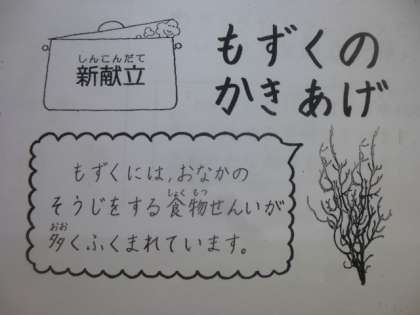 しんこんだて
新献立
もずくの
かきあげ
もずくには、おなかの
そうじをする食物せんいが
しょくもつ
多くふくまれています。
おお